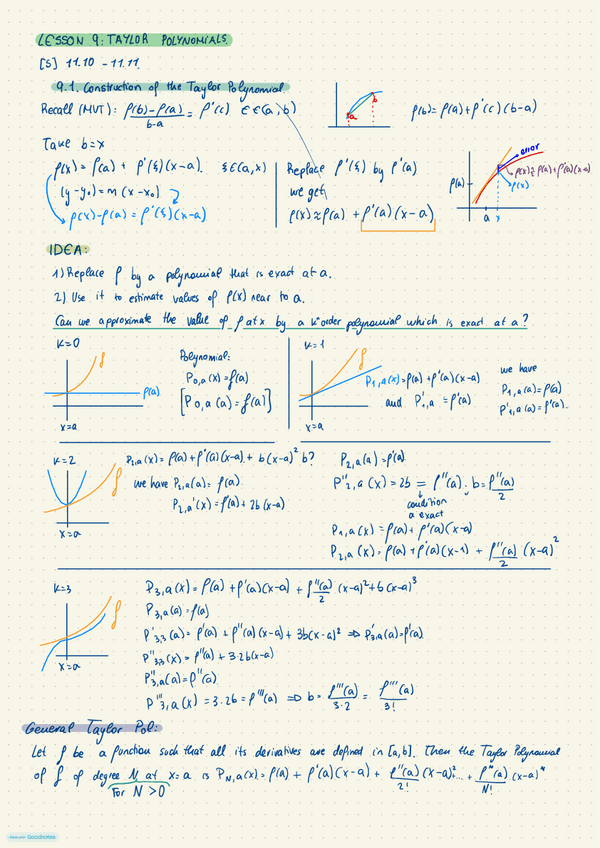 LESSON 9: TAYLOR POLYNOMIALS
[S] 11.10 - 11.11
9.1. Construction of the Taylor Polynomial
Recall (MVT): f(b)-f(a)/b-a = f'(c) c∈(a,b)
a b
f(b) = f(a) + f'(c)(b-a)
Take b=x
f(x) = f(a) + f'(ξ)(x-a). ξ∈(a,x)
(y-y₀) = m(x-x₀)
f(x)-f(a) = f'(ξ)(x-a)
Replace f'(ξ) by f'(a)
we get
f(x) ≈ f(a) + f'(a)(x-a)
error
f(x) ≈ f(a) + f'(a)(x-a)
f(x)
f(a)
a
IDEA:
1) Replace f by a polynomial that is exact at a.
2) Use it to estimate values of f(x) near to a.
Can we approximate the value of f at x by a k order polynomial which is exact at a?
K=0
f
f(a)
x=a
Polynomial:
P₀,a(x) = f(a)
[P₀,a(a) = f(a)]
K=1
f
x=a
P₁,a(x) = f(a) + f'(a)(x-a)
and P'₁,a = f'(a)
we have
P₁,a(a) = f(a)
P'₁,a(a) = f'(a).
K=2
f
x=a
P₂,a(x) = f(a) + f'(a)(x-a) + b(x-a)² b?
we have P₂,a(a) = f(a)
P₂,a'(x) = f'(a) + 2b(x-a)
P₂,a(a) = f(a)
P''₂,a(x) = 2b = f''(a). b = f''(a)/2
condition
a exact
P₁,a(x) = f(a) + f'(a)(x-a)
P₂,a(x) = f(a) + f'(a)(x-1) + f''(a)/2 (x-a)²
K=3
f
x=a
P₃,a(x) = f(a) + f'(a)(x-a) + f''(a)/2 (x-a)² + b(x-a)³
P₃,a(a) = f(a)
P'₃,₃(a) = f'(a) + f''(a)(x-a) + 3b(x-a)² ⇒ P'₃,a(a) = f'(a)
P''₃,₃(x) = f''(a) + 3·2b(x-a)
P''₃,a(a) = f''(a)
P'''₃,a(x) = 3·2b = f'''(a) ⇒ b = f'''(a)/3·2 = f'''(a)/3!
General Taylor Pol:
Let f be a function such that all its derivatives are defined in [a,b]. Then the Taylor Polynomial
of f of degree N at x=a is P_N,a(x) = f(a) + f'(a)(x-a) + f''(a)/2! (x-a)² ... + fⁿ(a)/N! (x-a)ⁿ
For N>0
Made with Goodnotes